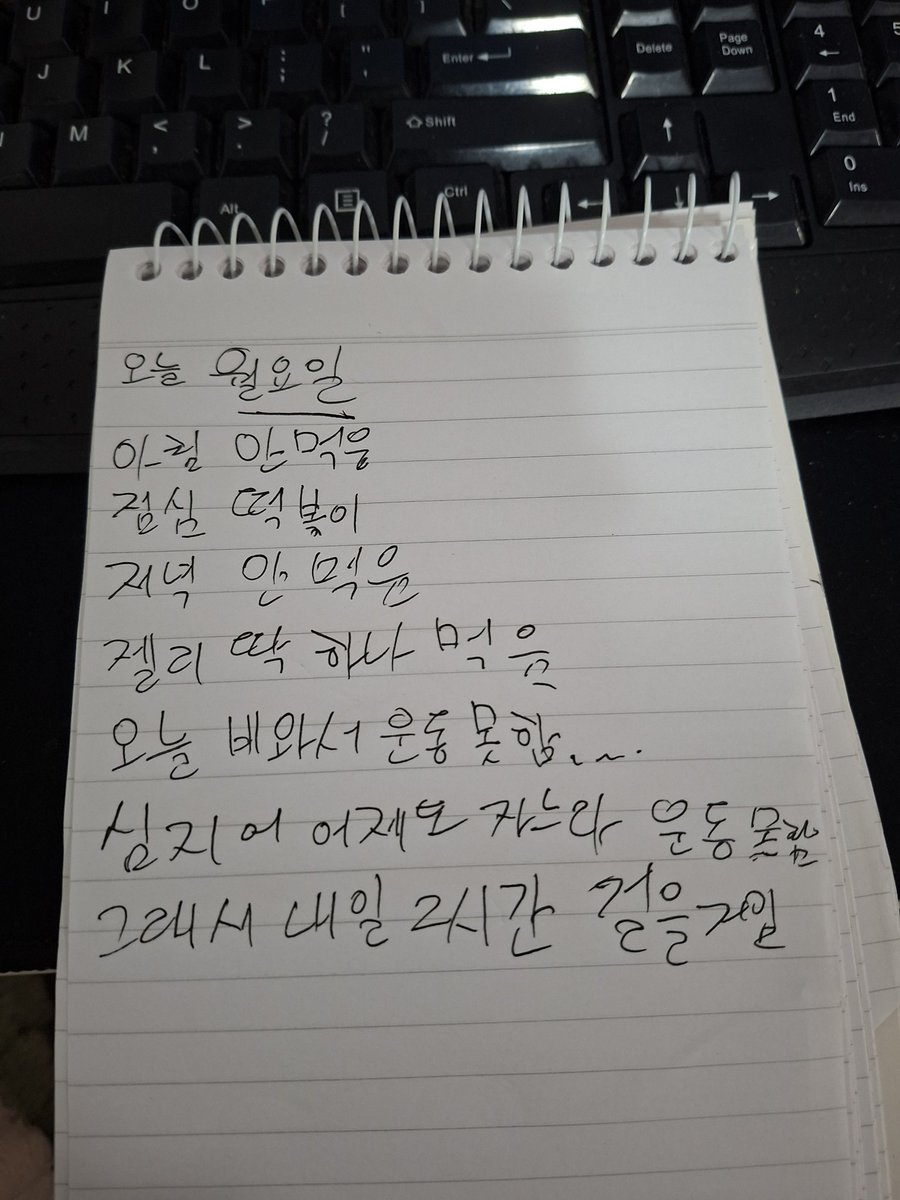 U I O P [ ] \
J K L : ; " ' Enter Delete Page Down 4 5
M < , > . ? / Shift 1 End
Alt Ctrl 0 Ins
오늘 월요일
아침 안먹음
점심 떡볶이
저녁 안 먹음
젤리 딱 하나 먹음
오늘 비와서 운동 못함...
심지어 어제도 자느라 운동 못함
그래서 내일 2시간 걸을거임